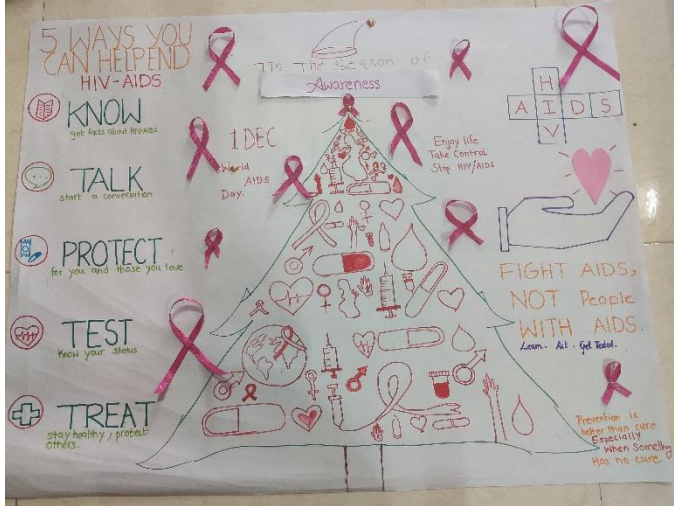 5 WAYS YOU
CAN HELPEND
HIV-AIDS
KNOW
get facts about HIV-AIDS
TALK
start a conversation
PROTECT
for you and those you love
TEST
Know your status
TREAT
stay healthy, protect
others.
'Tis The Season of
Awareness
1 DEC
World
AIDS
Day.
Enjoy life
Take Control
Stop HIV/AIDS
HIV
AIDS
FIGHT AIDS,
NOT People
WITH AIDS.
Learn. Act. Get Tested.
Prevention is
better than cure
Especially
When Something
Has no cure.